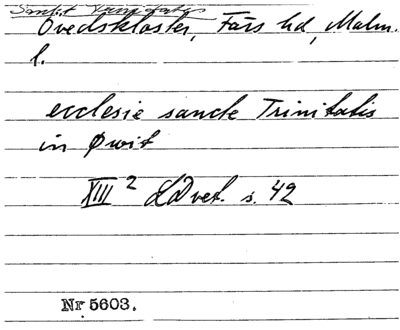 Sankt Trinitatis
Övedskloster, Färs hd, Malm.
l.
ecclesie sancte Trinitatis
in Øwit
XIII 2 LD vet. s. 42
Nr 5603.